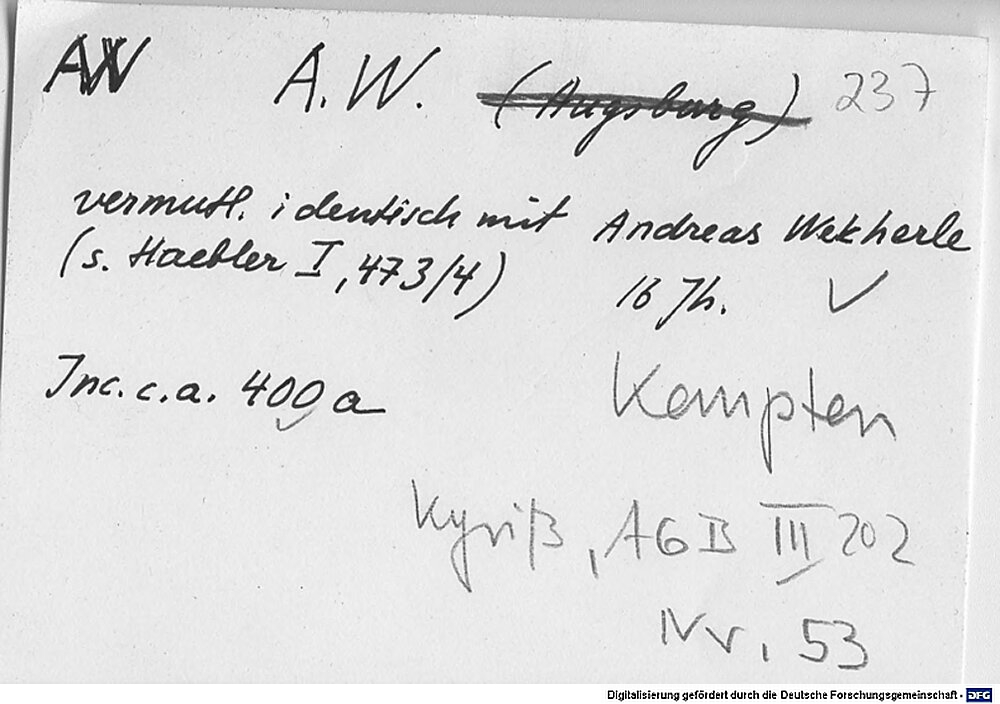 AW A.W. (Augsburg) 237
vermutl. identisch mit Andreas Wekherle
(s. Haebler I, 473/4) 16 Jh. ✓
Inc. c. a. 400 a
Kempten
Kyriß, AGB III 202
Nr. 53
Digitalisierung gefördert durch die Deutsche Forschungsgemeinschaft - DFG